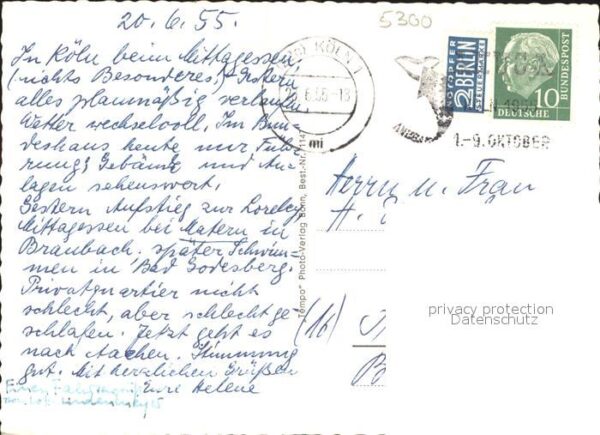 20.6.55.
5300
In Köln beim Mittagessen,
(nichts Besonderes!) Gestern
alles planmäßig verlaufen
Wetter wechselvoll. Im Bun-
deshaus heute nur Füh-
rung, Gebäude und An-
lagen sehenswert.
Gestern Aufstieg zur Loreley
Mittagessen bei Matern in
Braubach. später Schwim-
men in Bad Godesberg.
Privatquartier nicht
schlecht, aber schlecht ge-
schlafen. Jetzt geht es
nach Aachen. Stimmung
gut. Mit herzlichen Grüßen
Eure Helene
KÖLN 1
6.55-13
mi
NOTOPFER
2 BERLIN
STEUERMARKE
10
DEUTSCHE
BUNDESPOST
1.-9. OKTOBER
"Tempo" Photo-Verlag Bonn, Best.-Nr.
Herrn u. Frau
H.
(16)
privacy protection
Datenschutz